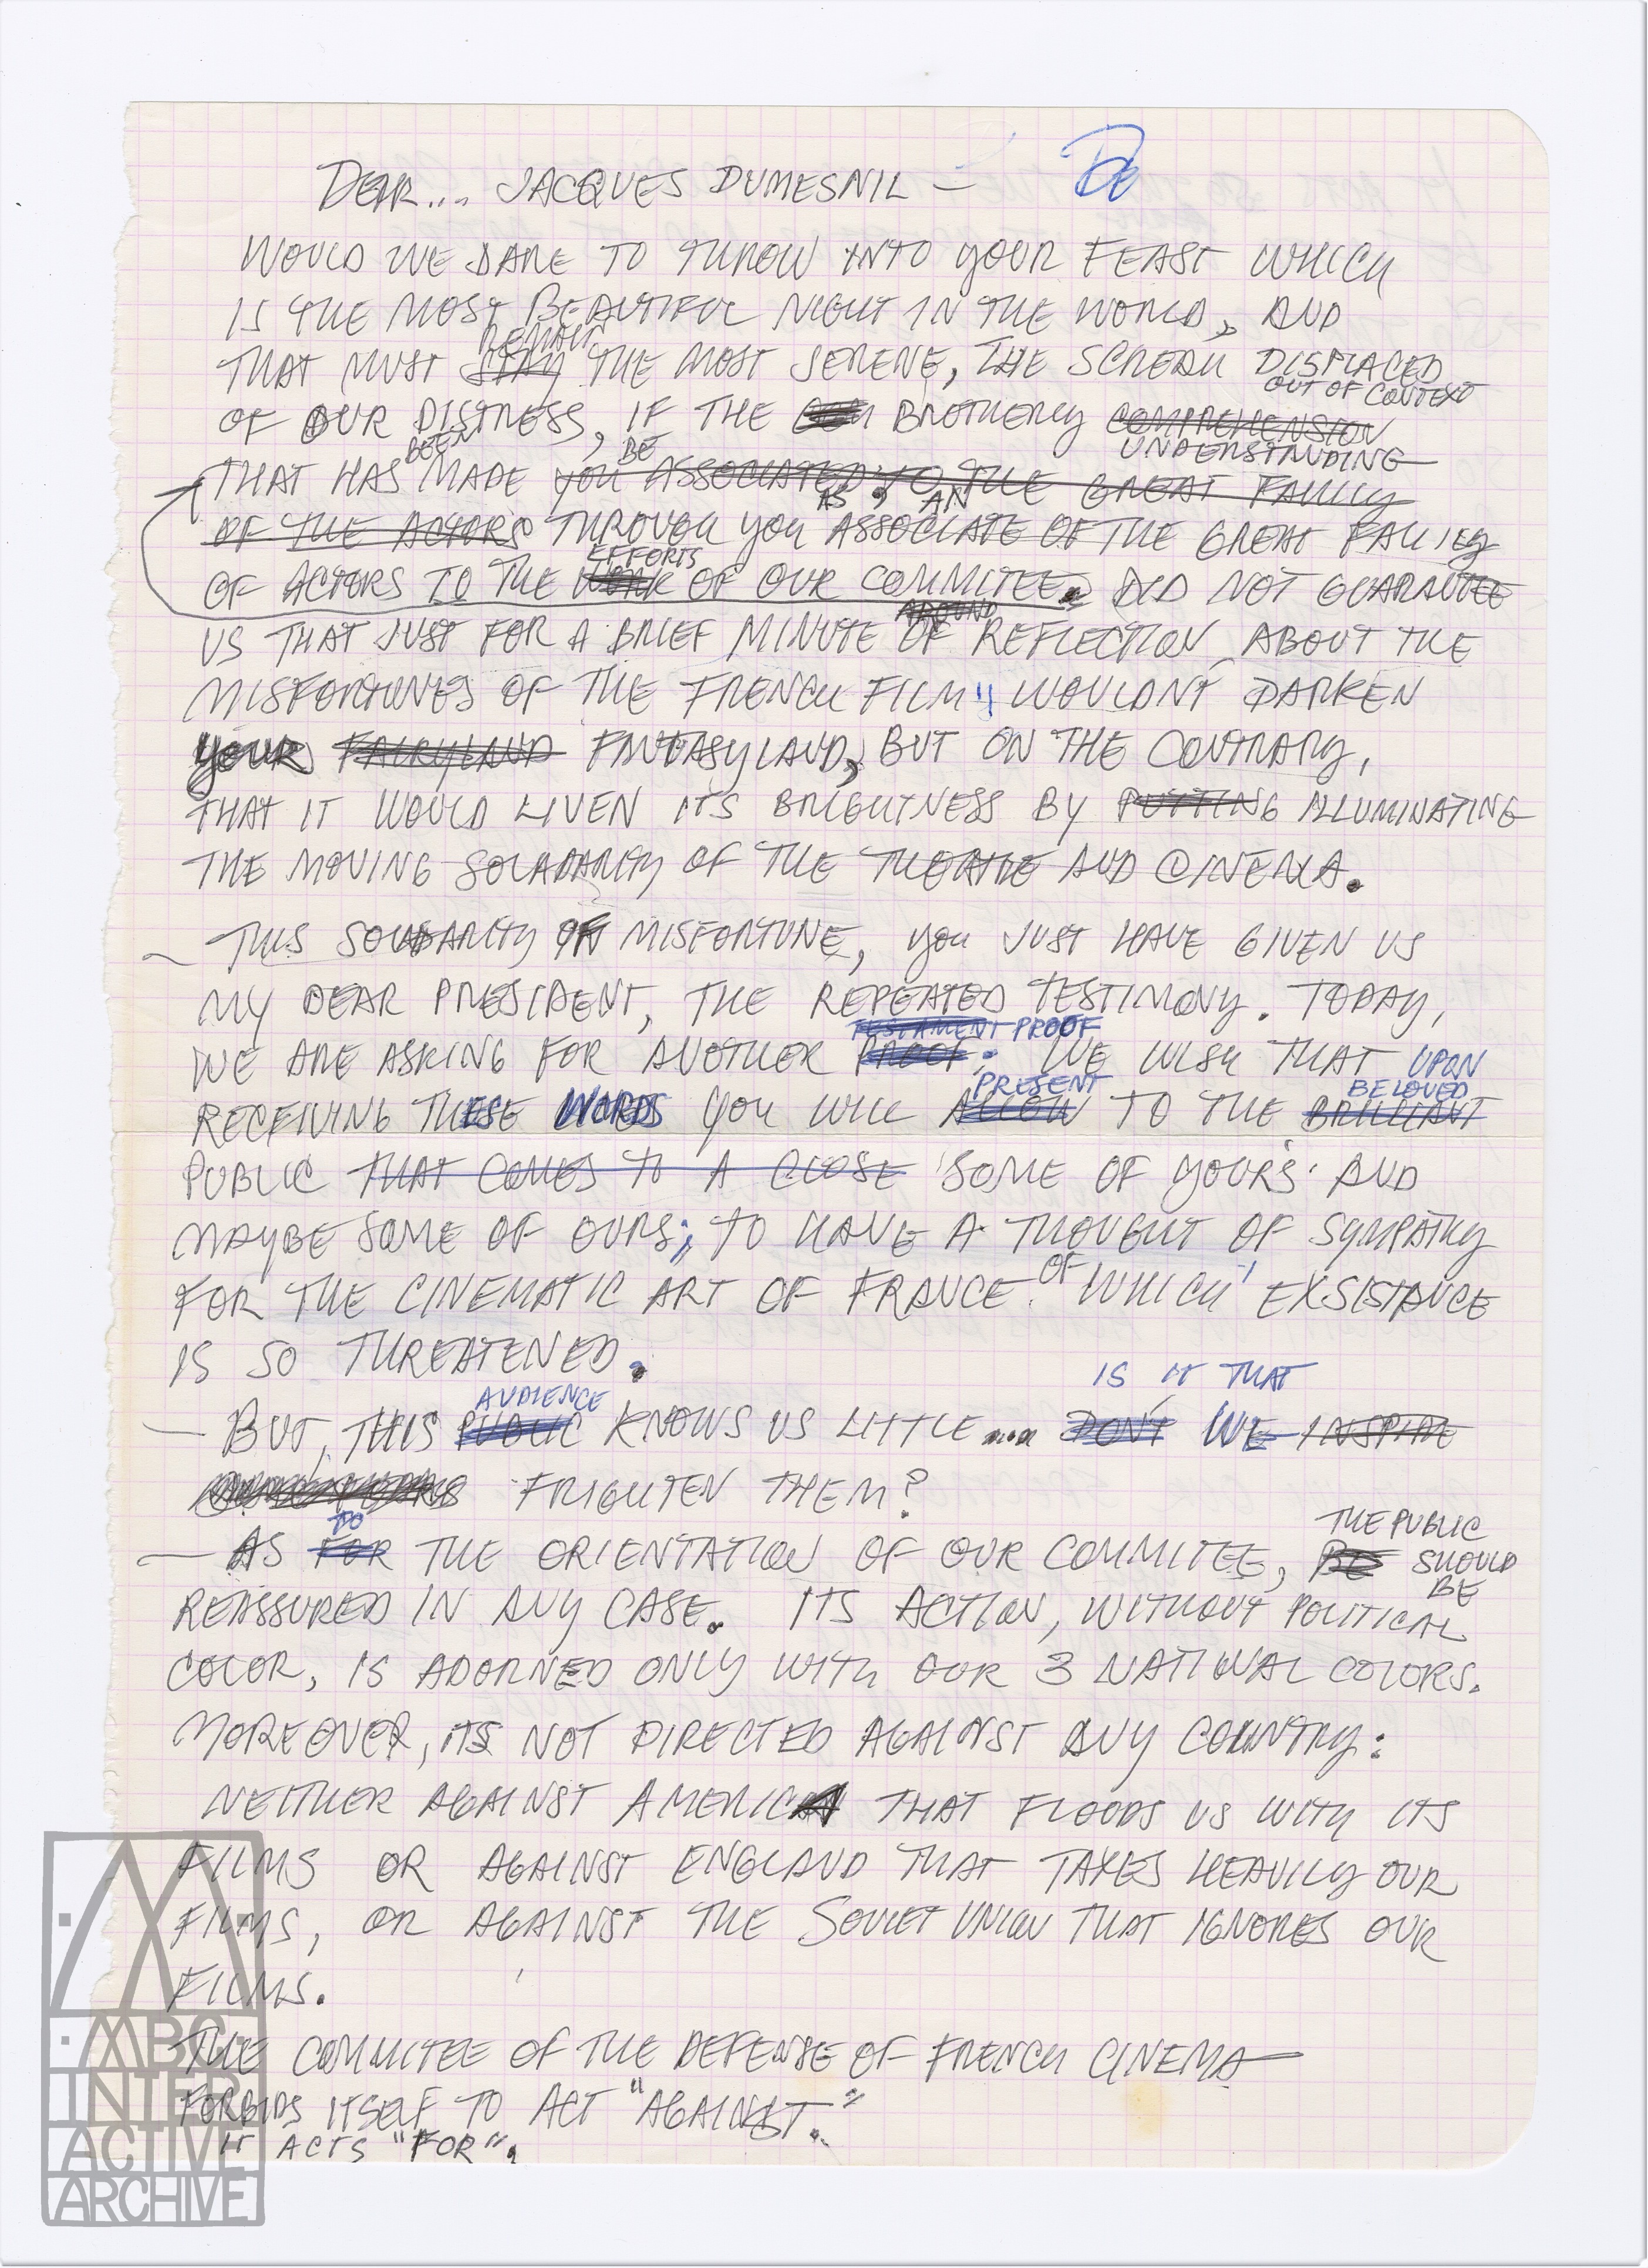 DEAR... JACQUES DUMESNIL —
WOULD WE DARE TO THROW INTO YOUR FEAST WHICH
IS THE MOST BEAUTIFUL NIGHT IN THE WORLD, AND
REMAIN
THAT MUST STAY THE MOST SERENE, THE SCREAM DISPLACED
OUT OF CONTEXT
OF OUR DISTRESS, IF THE BROTHERLY COMPREHENSION
UNDERSTANDING
BEEN BE
THAT HAS MADE YOU ASSOCIATED TO THE GREAT FAMILY
AS, AN
OF THE ACTORS THROUGH YOU ASSOCIATE OF THE GREAT FAMILY
EFFORTS
OF ACTORS TO THE WORK OF OUR COMMITEE. DID NOT GUARANTEE
AROUND
US THAT JUST FOR A BRIEF MINUTE OF REFLECTION ABOUT THE
MISFORTUNES OF THE FRENCH FILM, WOULDNT DARKEN
YOUR FAIRYLAND FANTASYLAND, BUT ON THE CONTRARY,
THAT IT WOULD LIVEN ITS BRIGHTNESS BY PUTTING ILLUMINATING
THE MOVING SOLADARITY OF THE THEATRE AND CINEMA.
— THIS SOLIDARITY OF MISFORTUNE, YOU JUST HAVE GIVEN US
MY DEAR PRESIDENT, THE REPEATED TESTIMONY. TODAY,
TESTAMENT PROOF
WE ARE ASKING FOR ANOTHER PROOF: WE WISH THAT UPON
PRESENT BELOVED
RECEIVING THESE WORDS YOU WILL ALLOW TO THE BRILLIANT
PUBLIC THAT COMES TO A CLOSE 'SOME OF YOURS' AND
MAYBE SOME OF OURS; TO HAVE A THOUGHT OF SYMPATHY
OF
FOR THE CINEMATIC ART OF FRANCE. WHICH' EXSISTANCE
IS SO THREATENED.
AUDIENCE IS IT THAT
— BUT, THIS PUBLIC KNOWS US LITTLE.... DON'T WE INSPIRE
FRIGHTEN THEM?
TO THE PUBLIC
— AS FOR THE ORIENTATION OF OUR COMMITEE, BE SHOULD
BE
REASSURED IN ANY CASE. ITS ACTION, WITHOUT POLITICAL
COLOR, IS ADORNED ONLY WITH OUR 3 NATIONAL COLORS.
MOREOVER, ITS NOT DIRECTED AGAINST ANY COUNTRY:
NEITHER AGAINST AMERICA THAT FLOODS US WITH ITS
FILMS OR AGAINST ENGLAND THAT TAXES HEAVILY OUR
FILMS, OR AGAINST THE SOVIET UNION THAT IGNORES OUR
FILMS.
THE COMMITEE OF THE DEFENSE OF FRENCH CINEMA
FORBIDS ITSELF TO ACT "AGAINST."
IT ACTS "FOR".
MBC
INTER
ACTIVE
ARCHIVE